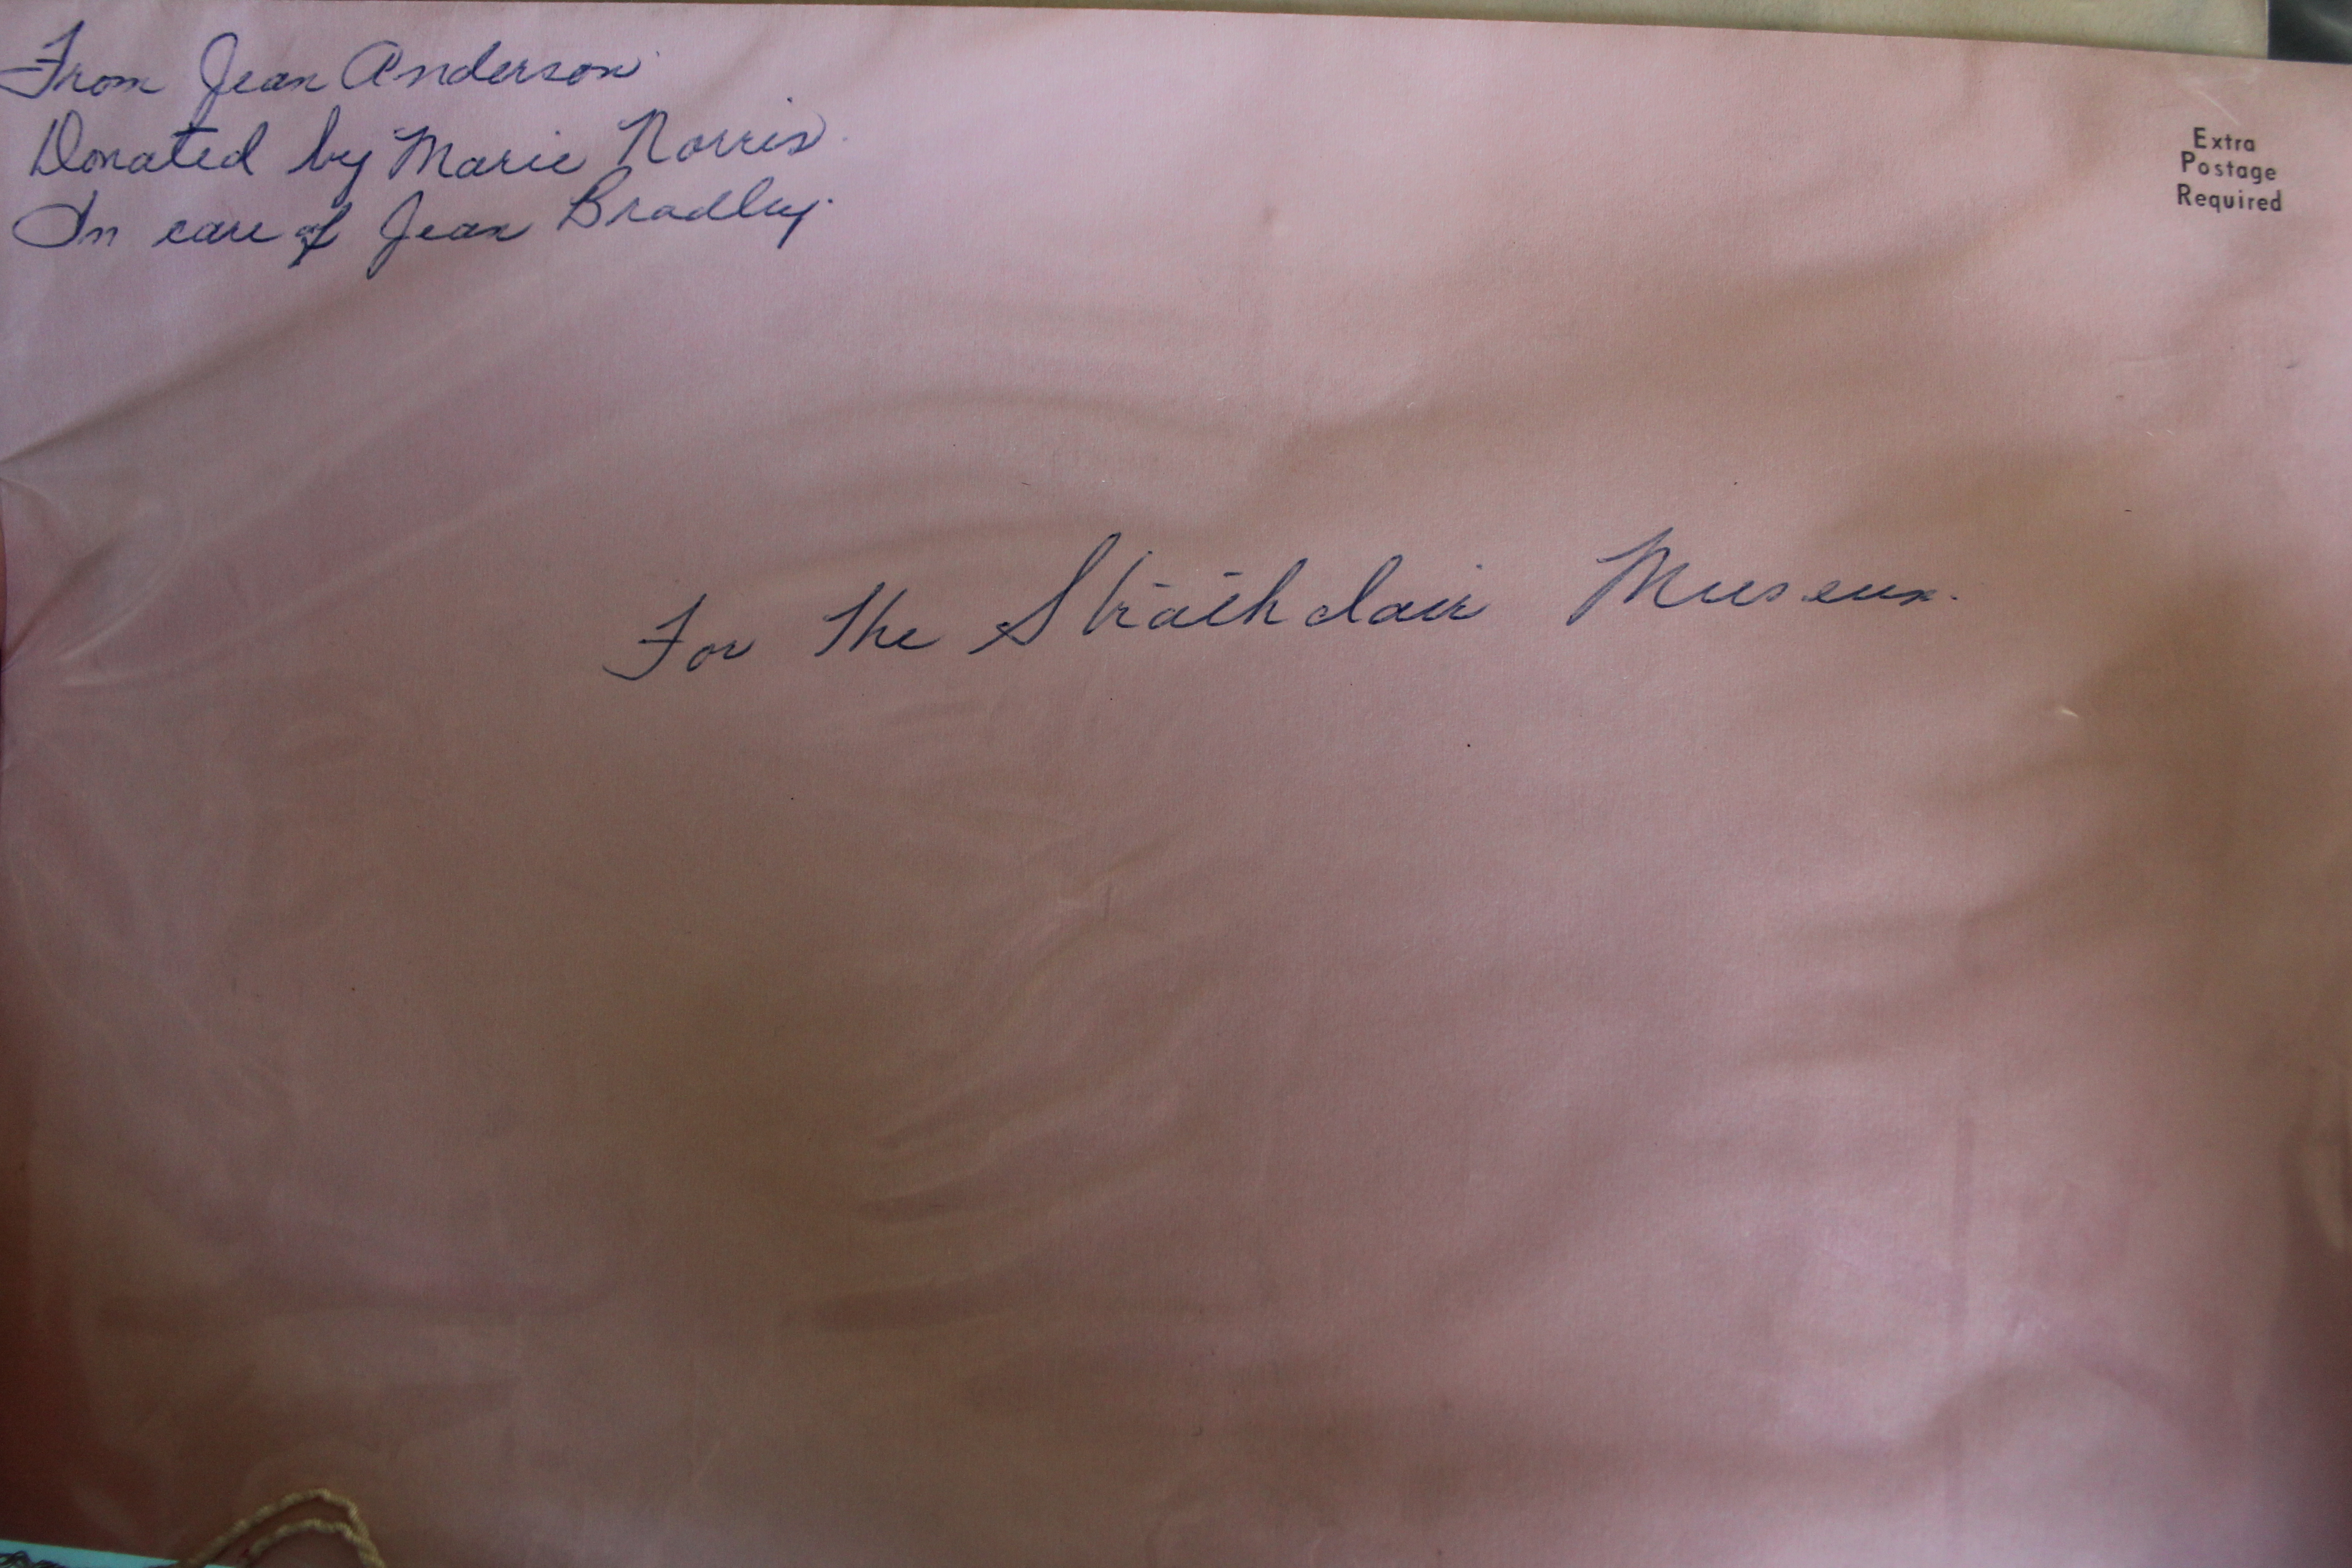 From Jean Anderson
Donated by Marie Norris
In care of Jean Bradley.
Extra
Postage
Required
For The Strathclair Museum.